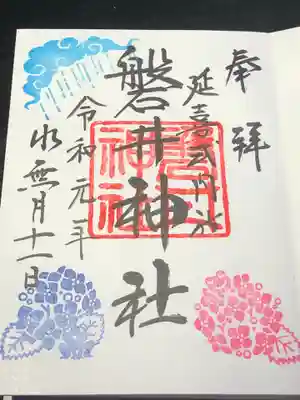 奉拝
延喜式内社
磐井神社
令和元年
水無月十一日
磐井神社